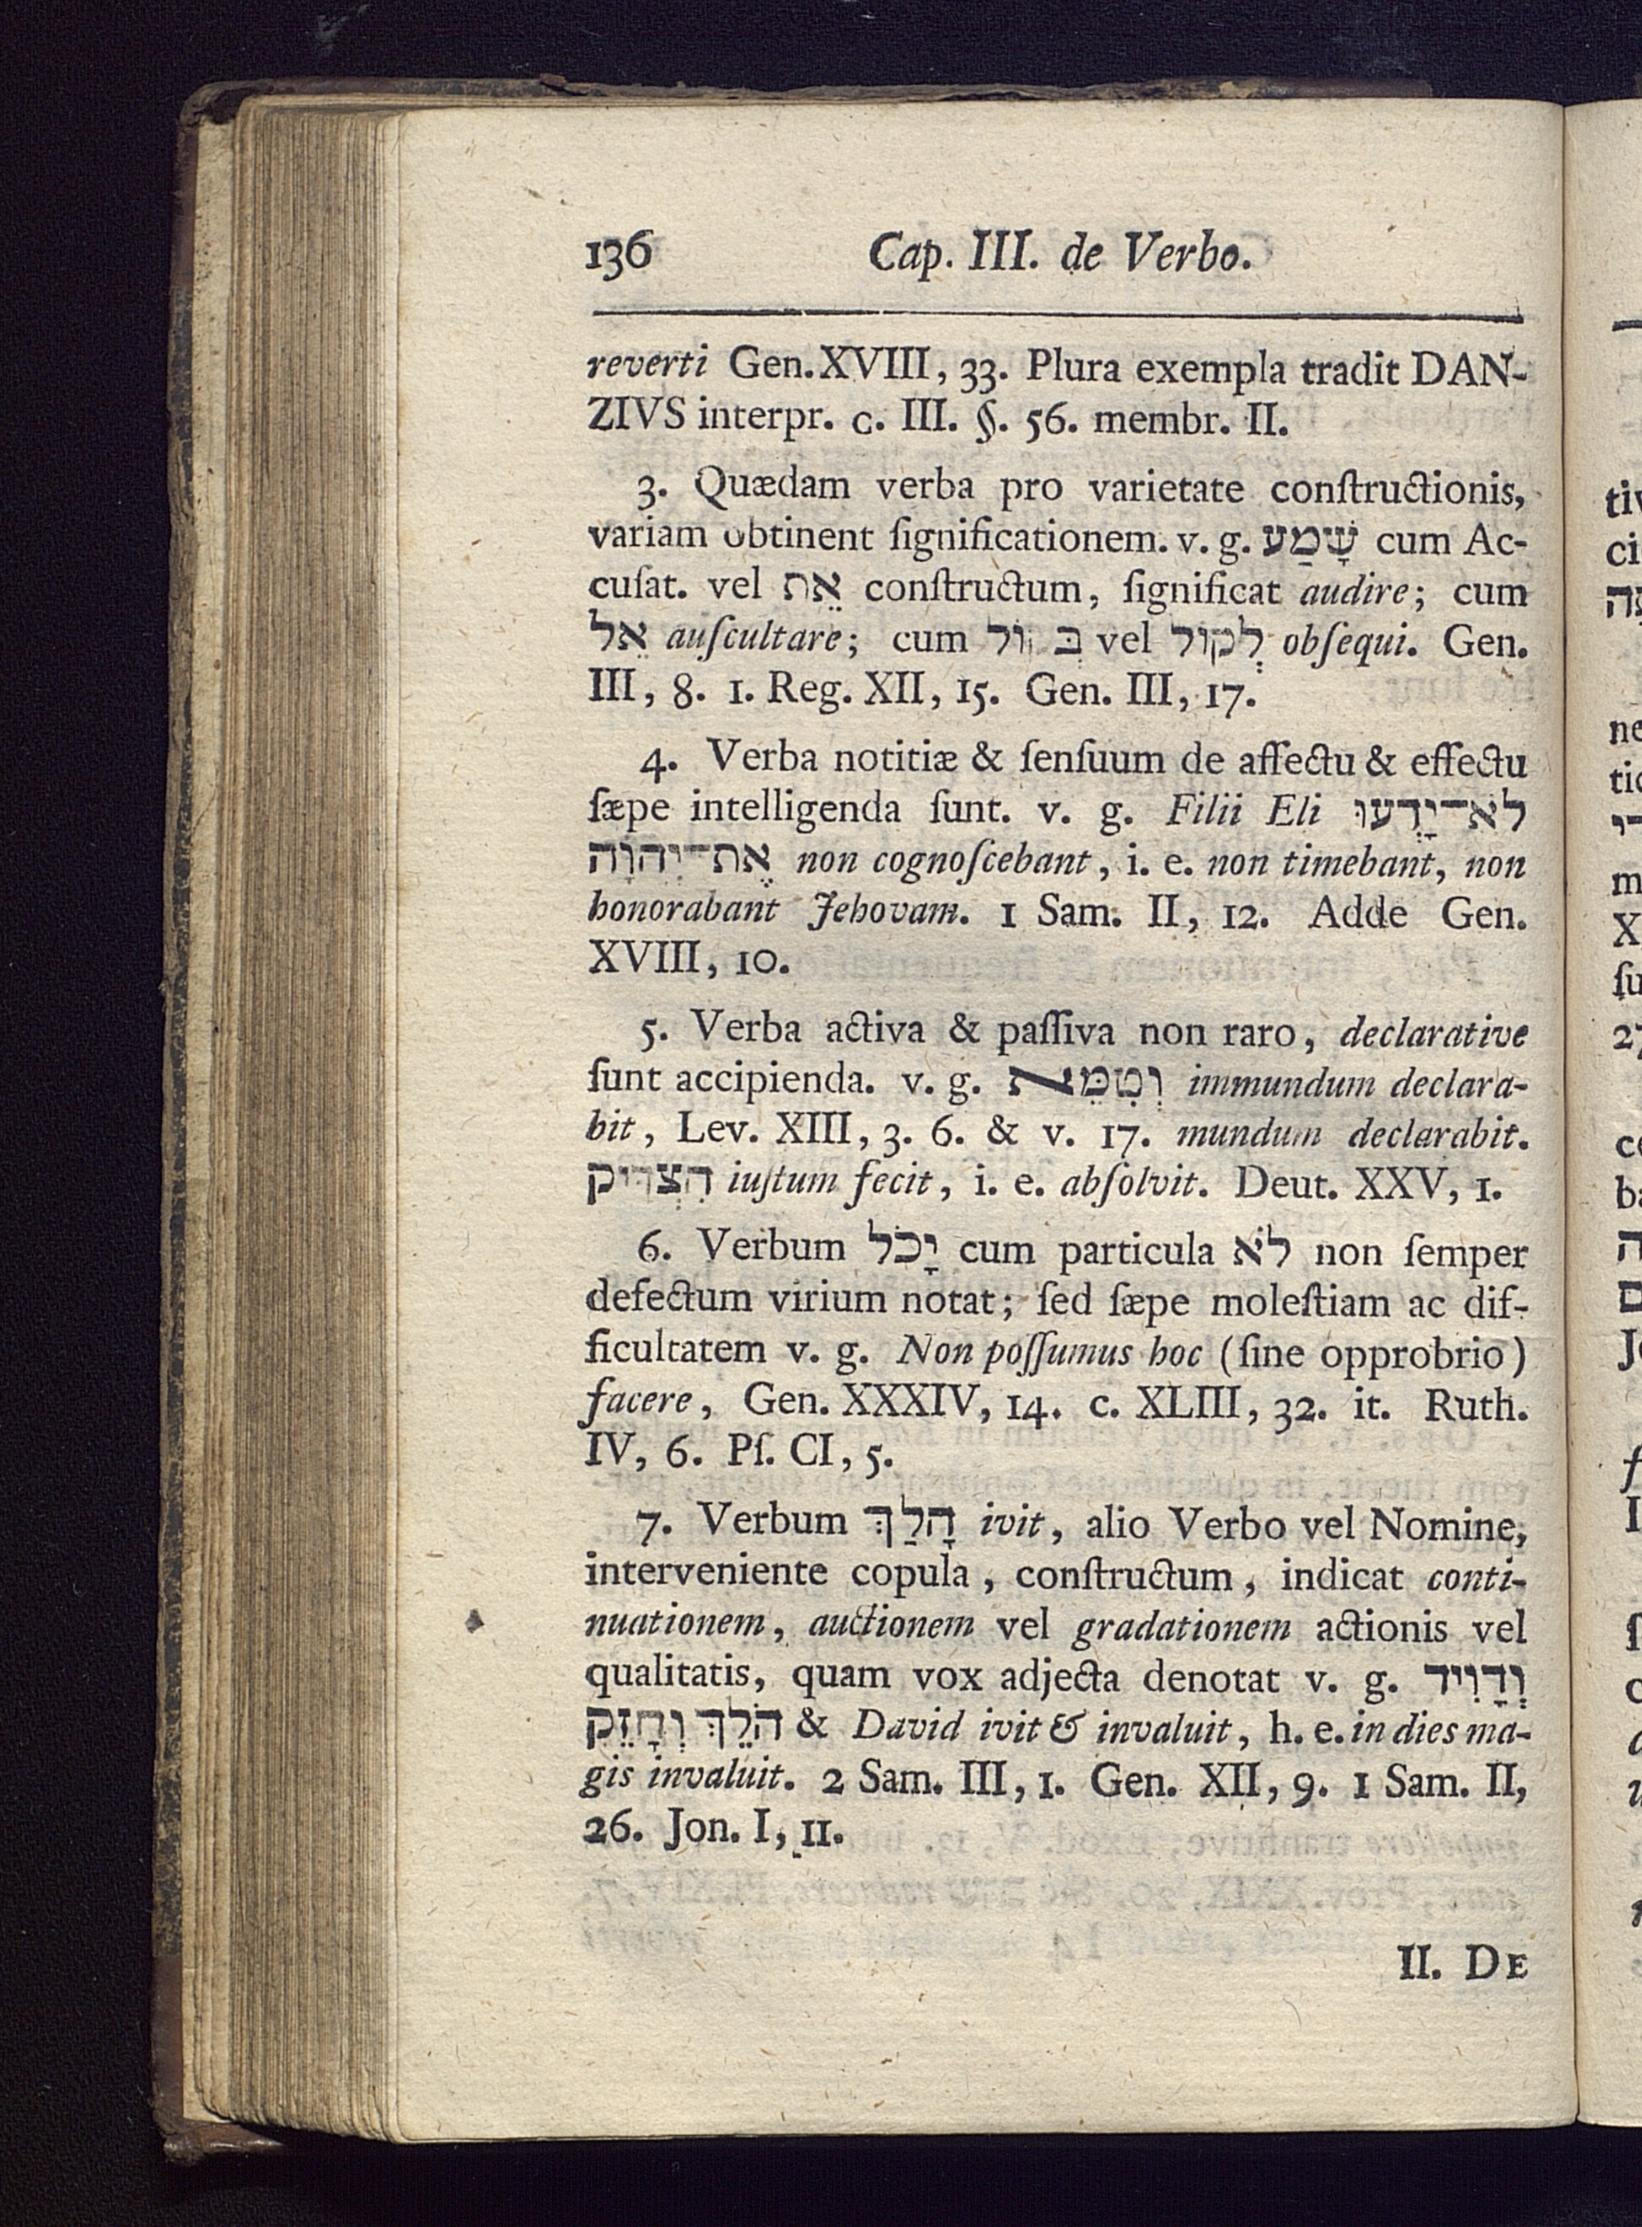 136 Cap. III. de Verbo.
reverti Gen. XVIII, 33. Plura exempla tradit DAN-
ZIVS interpr. c. III. §. 56. membr. II.
3. Quædam verba pro varietate conſtructionis,
variam obtinent ſignificationem. v. g. שָׁמַע cum Ac-
cuſat. vel אֵת conſtructum, ſignificat audire; cum
אֵל auſcultare; cum בְּקוֹל vel לְקוֹל obſequi. Gen.
III, 8. 1. Reg. XII, 15. Gen. III, 17.
4. Verba notitiæ & ſenſuum de affectu & effectu
ſæpe intelligenda ſunt. v. g. Filii Eli לֹא־יָדְעוּ
אֶת־יְהוָֹה non cognoſcebant, i. e. non timebant, non
honorabant Jehovam. 1 Sam. II, 12. Adde Gen.
XVIII, 10.
5. Verba activa & paſſiva non raro, declarative
ſunt accipienda. v. g. וְטִמֵּאת immundum declara-
bit, Lev. XIII, 3. 6. & v. 17. mundum declarabit.
הִצְדִּיק iuſtum fecit, i. e. abſolvit. Deut. XXV, 1.
6. Verbum יָכֹל cum particula לֹא non ſemper
defectum virium notat; ſed ſæpe moleſtiam ac dif-
ficultatem v. g. Non poſſumus hoc (ſine opprobrio)
facere, Gen. XXXIV, 14. c. XLIII, 32. it. Ruth.
IV, 6. Pſ. CI, 5.
7. Verbum הָלַךְ ivit, alio Verbo vel Nomine,
interveniente copula, conſtructum, indicat conti-
nuationem, auctionem vel gradationem actionis vel
qualitatis, quam vox adjecta denotat v. g. וְדָוִיד
הֹלֵךְ וְחָזֵק & David ivit & invaluit, h. e. in dies ma-
gis invaluit. 2 Sam. III, 1. Gen. XII, 9. 1 Sam. II,
26. Jon. I, 11.
II. DE